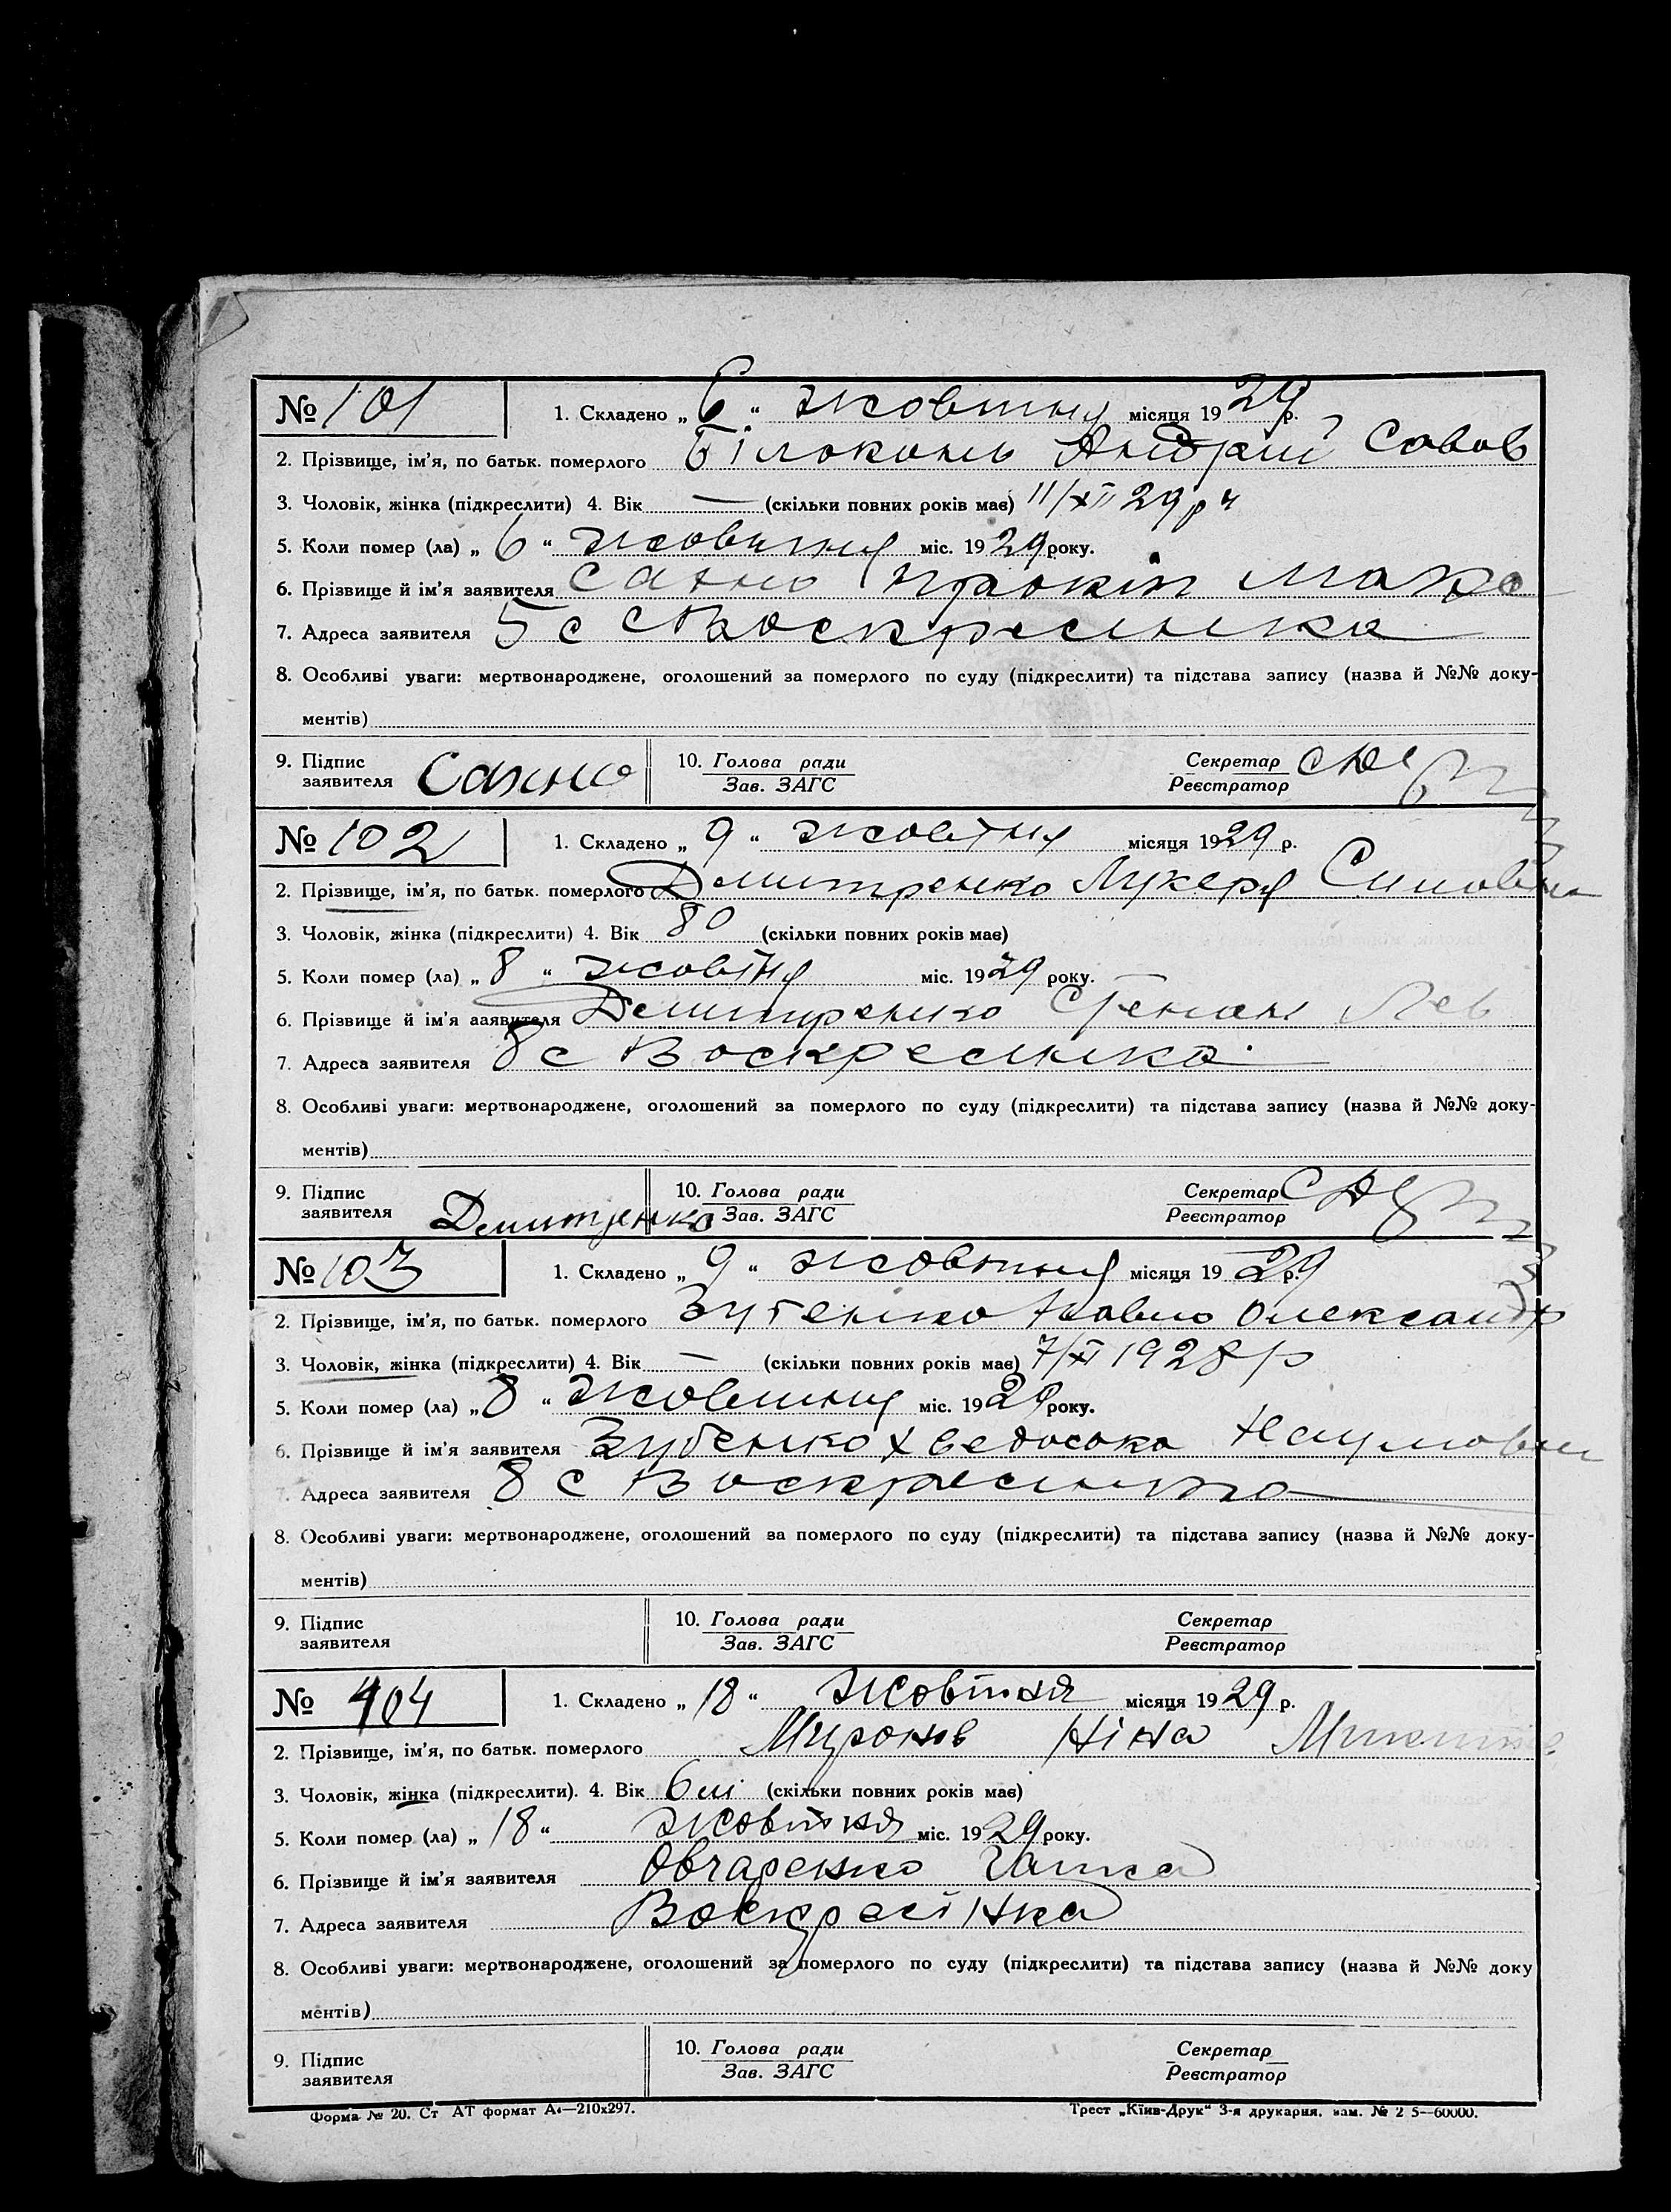 № 101 1. Складено „ 6 “ жовтня місяця 1929 р.
2. Прізвище, ім'я, по батьк. померлого Білоконь Андрій Савов
3. Чоловік, жінка (підкреслити) 4. Вік — (скільки повних років має) 11/XII 29 р
5. Коли помер (ла) „ 6 “ жовтня міс. 1929 року.
6. Прізвище й ім'я заявителя Сахно Прокіп Мака
7. Адреса заявителя с Воскресенка
8. Особливі уваги: мертвонароджене, оголошений за померлого по суду (підкреслити) та підстава запису (назва й №№ доку-
ментів)
9. Підпис заявителя Сахно 10. Голова ради Зав. ЗАГС Секретар Реєстратор
№ 102 1. Складено „ 9 “ жовтня місяця 1929 р.
2. Прізвище, ім'я, по батьк. померлого Дмитренко Лукеря
3. Чоловік, жінка (підкреслити) 4. Вік 80 (скільки повних років має)
5. Коли помер (ла) „ 8 “ жовтня міс. 1929 року.
6. Прізвище й ім'я заявителя Дмитренко Степан Лев
7. Адреса заявителя 8 с Воскресенка
8. Особливі уваги: мертвонароджене, оголошений за померлого по суду (підкреслити) та підстава запису (назва й №№ доку-
ментів)
9. Підпис заявителя Дмитренко 10. Голова ради Зав. ЗАГС Секретар Реєстратор
№ 103 1. Складено „ 9 “ жовтня місяця 1929 р.
2. Прізвище, ім'я, по батьк. померлого Зубенко Павло Олександр
3. Чоловік, жінка (підкреслити) 4. Вік — (скільки повних років має) 7/XI 1928 р
5. Коли помер (ла) „ 8 “ жовтня міс. 1929 року.
6. Прізвище й ім'я заявителя Зубенко Хведоська Наумовна
7. Адреса заявителя 8 с Воскресенка
8. Особливі уваги: мертвонароджене, оголошений за померлого по суду (підкреслити) та підстава запису (назва й №№ доку-
ментів)
9. Підпис заявителя 10. Голова ради Зав. ЗАГС Секретар Реєстратор
№ 104 1. Складено „ 18 “ жовтня місяця 1929 р.
2. Прізвище, ім'я, по батьк. померлого Муронів Ніна
3. Чоловік, жінка (підкреслити). 4. Вік 6 (скільки повних років має)
5. Коли помер (ла) „ 18 “ жовтня міс. 1929 року.
6. Прізвище й ім'я заявителя Овчаренко
7. Адреса заявителя Воскресінка
8. Особливі уваги: мертвонароджене, оголошений за померлого по суду (підкреслити) та підстава запису (назва й №№ доку
ментів)
9. Підпис заявителя 10. Голова ради Зав. ЗАГС Секретар Реєстратор
Форма № 20. Ст АТ формат А4—210х297. Трест „Київ-Друк“ 3-я друкарня.